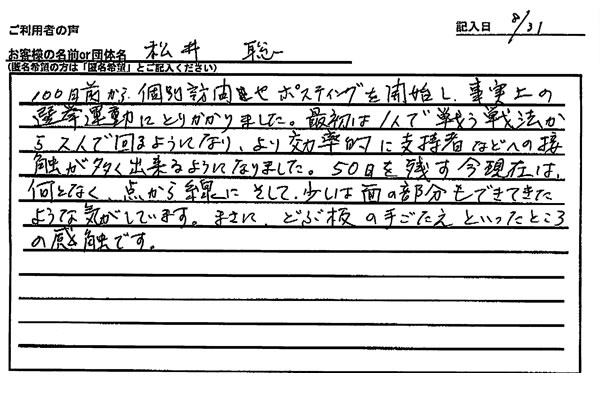 ご利用者の声
記入日 8/31
お客様の名前or団体名 松井 聡一
(匿名希望の方は「匿名希望」とご記入ください)
100日前から、個別訪問やポスティングを開始し、事実上の
選挙運動にとりかかりました。最初は1人で戦う戦法か
ら2人で回るようになり、より効率的に支持者などへの接
触が多く出来るようになりました。50日を残す今現在は、
何となく、点から線に そして、少しは面の部分もできてきた
ような気がしています。まさに、どぶ板の手ごたえといったところ
の感触です。